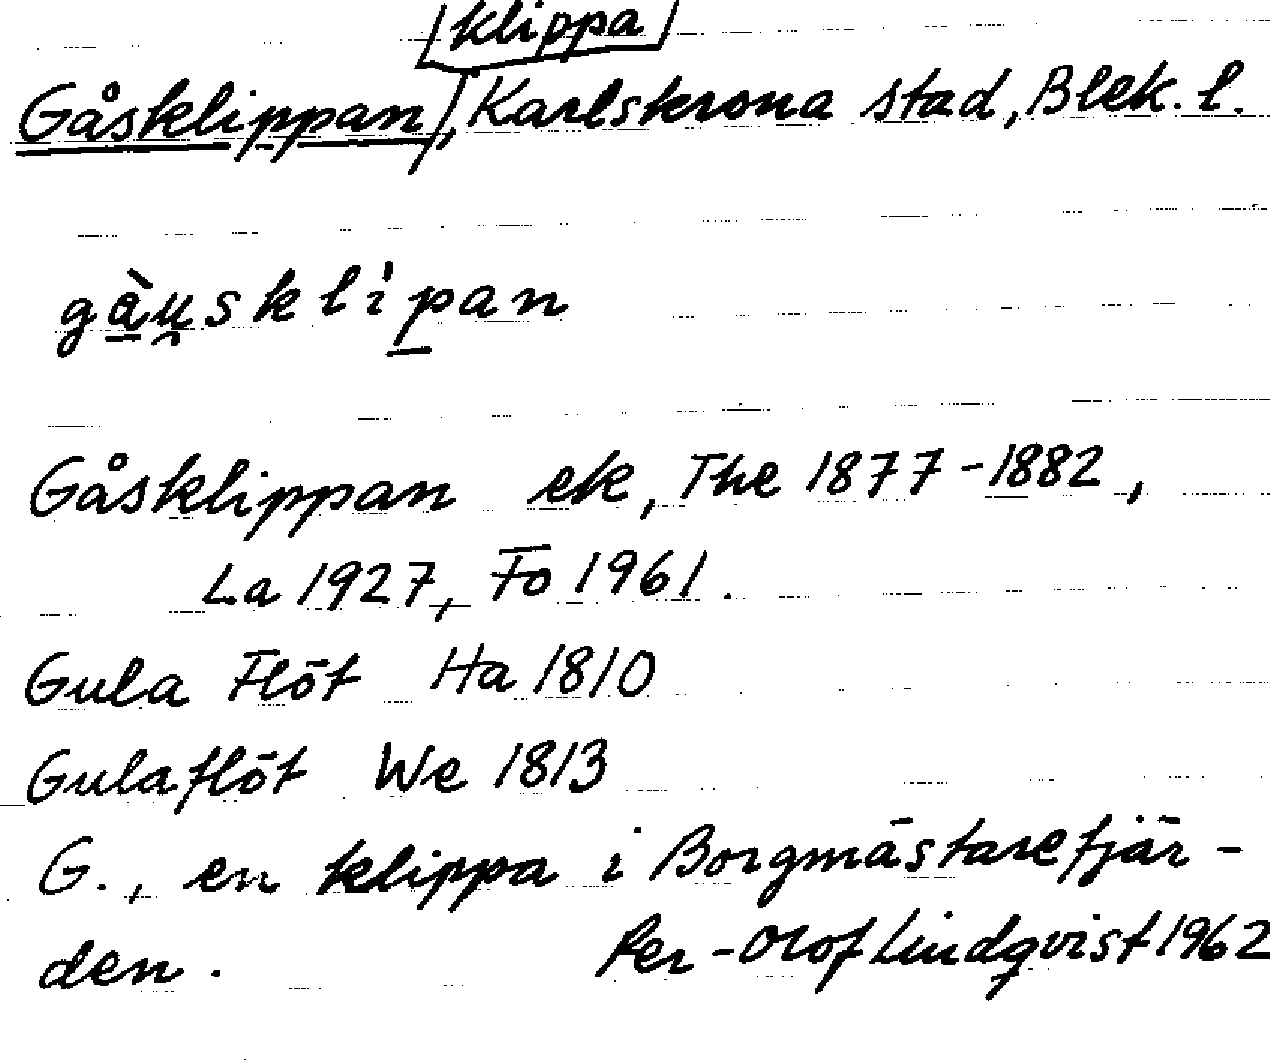 klippa
Gåsklippan, Karlskrona stad, Blek. l.
gàu̯sklipan
Gåsklippan ek, The 1877-1882,
La 1927, Fo 1961.
Gula Flöt Ha 1810
Gulaflöt We 1813
G., en klippa i Borgmästarefjär-
den. Per-Olof Lindqvist 1962